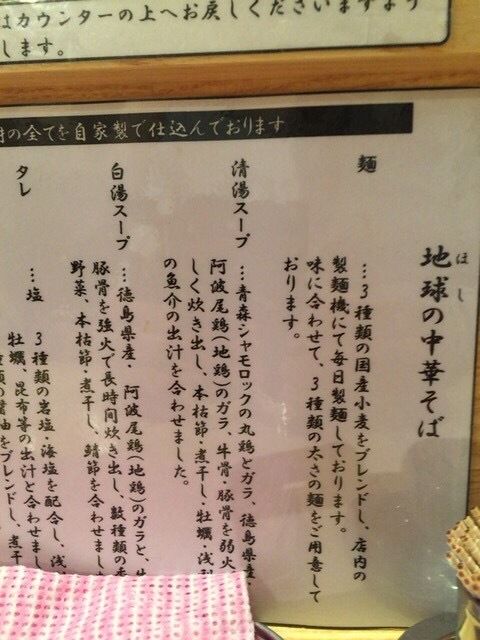 はカウンターの上へお戻しくださいますよう
します。
の全てを自家製で仕込んでおります
地球の中華そば
ほし
麺
…3種類の国産小麦をブレンドし、店内の
製麺機にて毎日製麺しております。
味に合わせて、3種類の太さの麺をご用意して
おります。
清湯スープ
…青森シャモロックの丸鶏とガラ、徳島県産
阿波尾鶏(地鶏)のガラ、牛骨・豚骨を弱火
しく炊き出し、本枯節・煮干し・牡蠣・浅
の魚介の出汁を合わせました。
白湯スープ
…徳島県産・阿波尾鶏(地鶏)のガラと、
豚骨を強火で長時間炊き出し、数種類の
野菜、本枯節・煮干し、鯖節を合わせまし
タレ
…塩
3種類の岩塩・海塩を配合し、浅
牡蠣、昆布等の出汁と合わせまし
種類の醤油をブレンドし、煮干